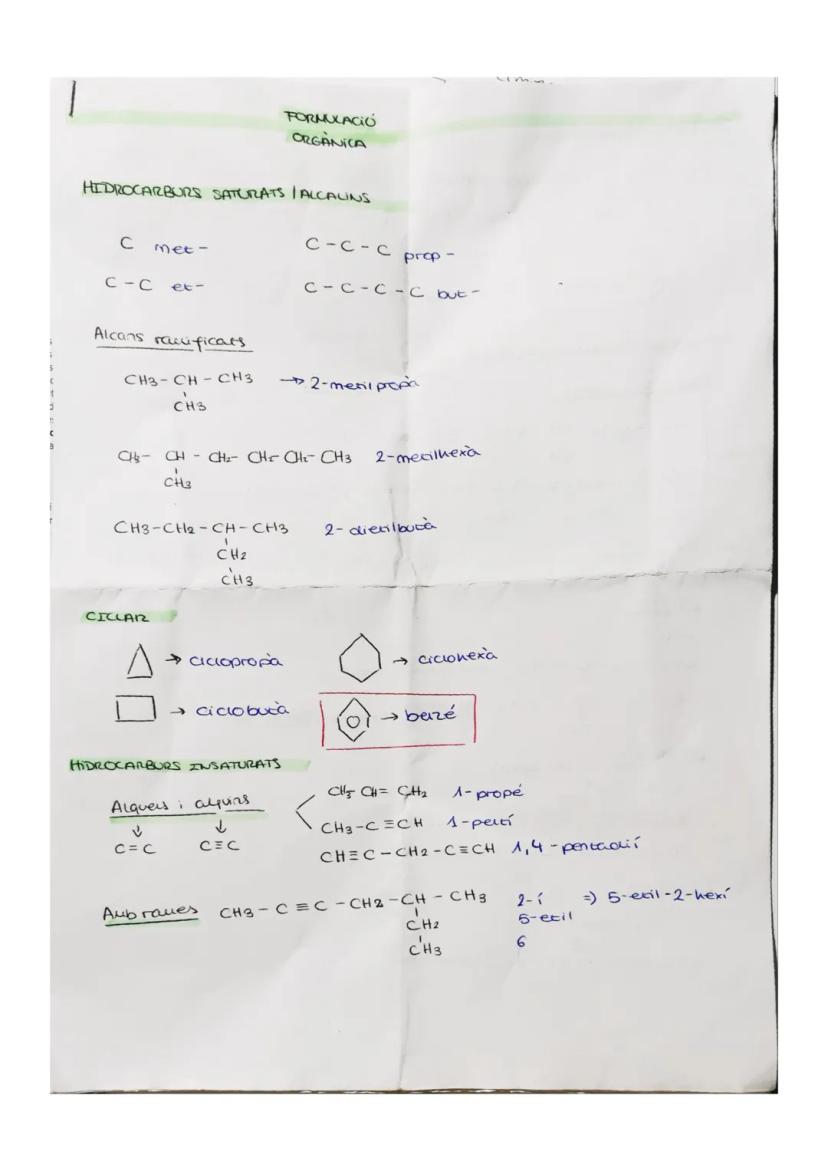 FORMULACIÓ
ORGÀNICA
HIDROCARBURS SATURATS / ALCALINS
C met-
C-C-C prop-
C-C et-
C-C-C-C but-
Alcans ramificats
CH3-CH-CH3 → 2-metilpropà
CH3
CH3- CH - CH2- CH2- CH2- CH3 2-metilhexà
CH3
CH3-CH2-CH-CH3 2-dietilbutà
CH2
CH3
CICLAR
→ ciclopropà
→ ciclohexà
→ ciclobutà
→ benzé
HIDROCARBURS INSATURATS
Alquens i alquins
CH3 CH= CH2 1-propé
CH3-C≡CH 1-pentí
C=C C≡C
CH≡C-CH2-C≡CH 1,4-pentadií
Amb rames CH3-C≡C-CH2-CH-CH3 2-í => 5-etil-2-hexí
CH2 5-etil
CH3 6